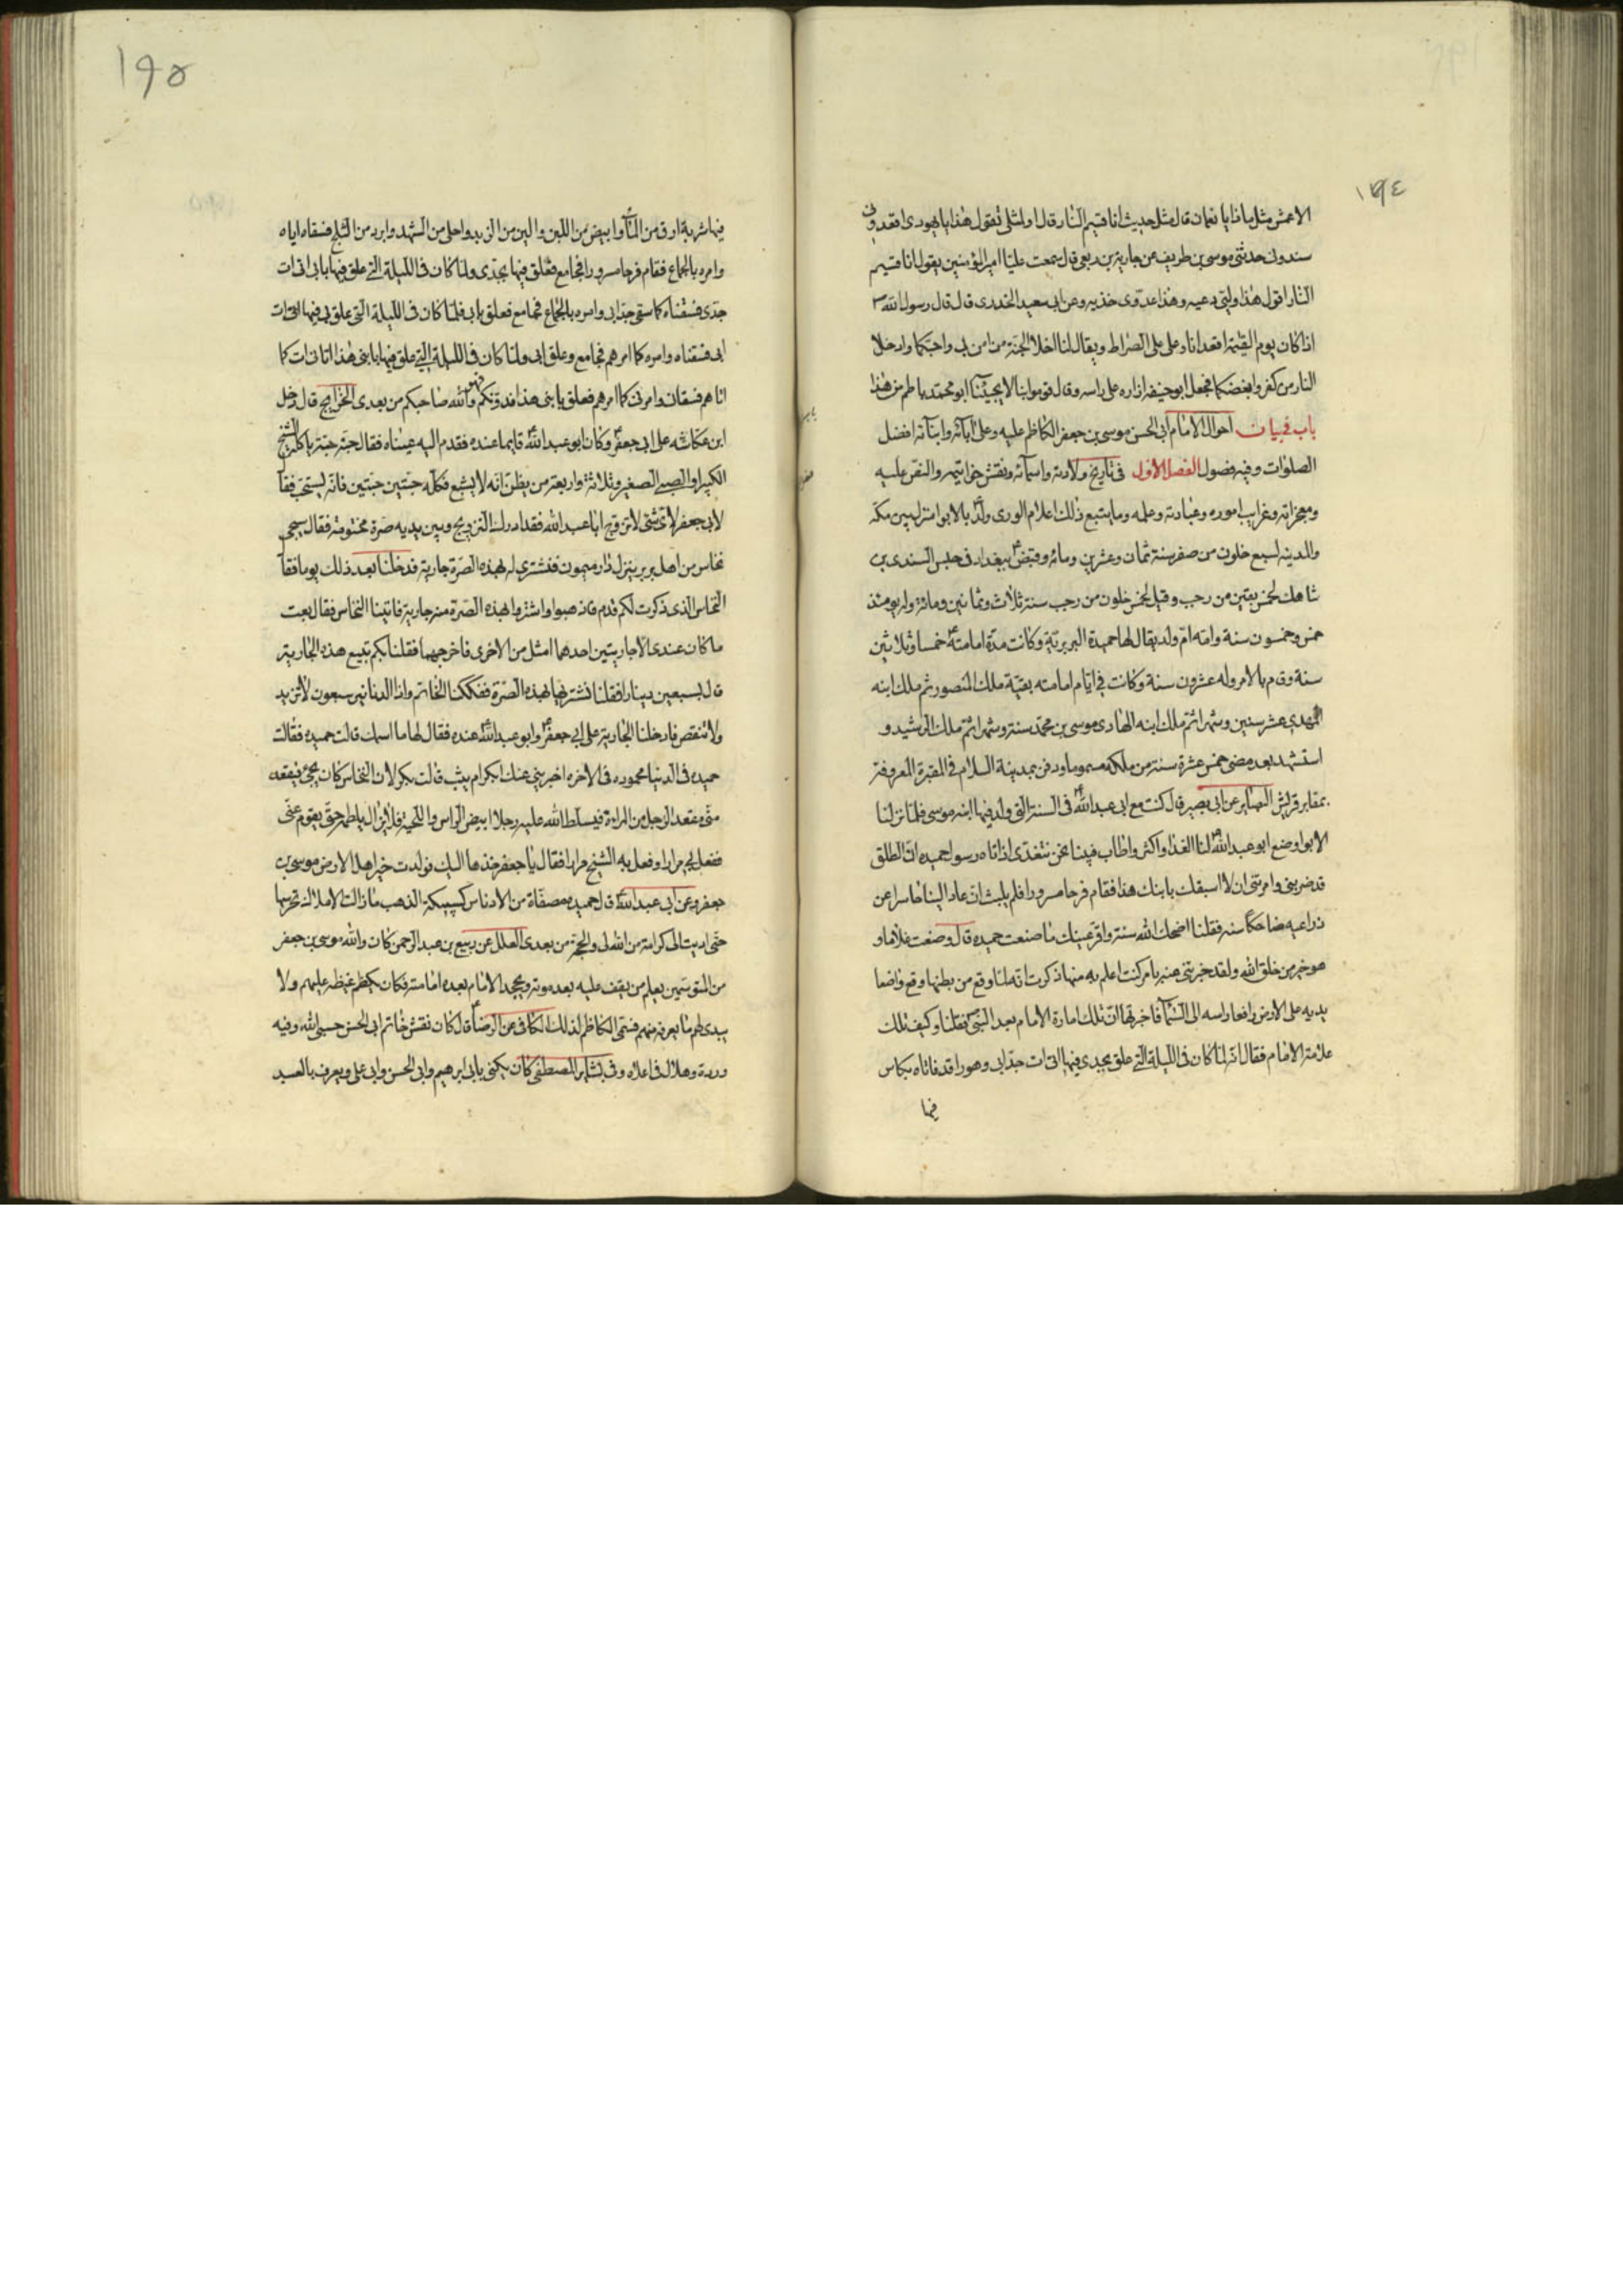 ١٩٤
الاعمش مثل ماذا يا نعمان قال مثل حديث انا قسيم النار قال اولمثلي تقول هذا يا يهودي اقعدوني
سندوني حدثني موسى بن طريف عن عباية بن ربعي قال سمعت عليا امير المؤمنين يقول انا قسيم
النار اقول هذا وليي دعيه وهذا عدوي خذيه وعن ابي سعيد الخدري قال قال رسول الله
اذا كان يوم القيمة اقعد انا وعلي على الصراط ويقال لنا ادخلا الجنة من امن بي واحبكما وادخلا
النار من كفر وابغضكما فجعل ابو حنيفه ازاره على راسه وقال قوموا بنا لا يجيئنا ابو محمد باطم من هذا
باب في بيان احوال الامام ابي الحسن موسى بن جعفر الكاظم عليه وعلى آبائه وابنائه افضل
الصلوات وفيه فصول الفصل الاول في تاريخ ولادته واسمائه ونقش خواتيمه والنص عليه
ومعجزاته وغرايب اموره وعبادته وعلمه وما يتبع ذلك اعلام الورى ولد بالابوا منزل بين مكه
والمدينه لسبع خلون من صفر سنة ثمان وعشرين ومائه وقبض ببغداد في حبس السندي بن
شاهك لخمس بقين من رجب وقيل لخمس خلون من رجب سنة ثلاث وثمانين ومائة وله يومئذ
خمس وخمسون سنة وامه ام ولد يقال لها حميدة البربرية وكانت مدة امامته خمسا وثلاثين
سنة وقام بالامر وله عشرون سنة وكانت في ايام امامته بقية ملك المنصور ثم ملك ابنه
المهدي عشر سنين وشهرا ثم ملك ابنه الهادي موسى بن محمد سنة وشهرا ثم ملك الرشيد و
استشهد بعد مضي خمس عشرة سنة من ملكه مسموما ودفن بمدينة السلام في المقبرة المعروفة
بمقابر قريش البصاير عن ابي بصير قال كنت مع ابي عبد الله في السنة التي ولد فيها ابنه موسى فلما نزلنا
الابوا وضع ابو عبد الله لنا الغذا واكثر واطاب فبينا نحن نتغدى اذ اتاه رسول حميده ان الطلق
قد ضربني وامرتني ان لا اسبقك بابنك هذا فقام فرحا مسرورا فلم يلبث ان عاد الينا حاسرا عن
ذراعيه ضاحكا سنه فقلنا اضحك الله سنك واقر عينك ما صنعت حميده قال وضعت غلاما و
هو خير من خلق الله ولقد خبرتني عنه بامر كنت اعلم به منها ذكرت انه لما وقع من بطنها وقع واضعا
يديه على الارض رافعا راسه الى السماء فاخبرتها ان تلك امارة الامام بعد النبي فقلنا وكيف تلك
علامة الامام فقال انه لما كان في الليلة التي علق بجدي فيها اتى ات جد ابي وهو راقد فاتاه بكاس
فيها
١٩٥
فيها شربة ارق من الماء وابيض من اللبن والين من الزبد واحلى من الشهد وابرد من الثلج فسقاه اياه
وامره بالجماع فقام فرحا مسرورا فجامع فعلق فيها بجدي ولما كان في الليلة التي علق فيها بابي اتى ات
جدي فسقاه كما سقى جد ابي وامره بالجماع فجامع فعلق بابي فلما كان في الليلة التي علق بي فيها اتى ات
ابي فسقاه وامره كما امرهم فجامع وعلق بي ولما كان في الليلة التي علق فيها بابني هذا اتاني ات كما
اتاهم فسقاني وامرني كما امرهم فعلق بابني هذا فدونكم فهو والله صاحبكم من بعدي الخرايج قال دخل
ابن عكاشه على ابي جعفر وكان ابو عبد الله قايما عنده فقدم اليه عنبا فقال حبة حبة ياكل الشيخ
الكبير او الصبي الصغير وثلاثة واربعة من يظن انه لا يشبع فكله حبتين حبتين فانه يستحب فقال
لابي جعفر لاي شئ لا تزوج ابا عبد الله فقد ادرك التزويج وبين يديه صرة مختومة فقال سيجئ
نخاس من اهل بربر ينزل دار ميمون فنشتري له بهذه الصرة جارية فدخلنا بعد ذلك يوما فقال
النخاس الذي ذكرت لكم قدم فاذهبوا واشتروا بهذه الصرة منه جارية فاتينا النخاس فقال بعت
ما كان عندي الا جاريتين احدهما امثل من الاخرى فاخرجهما فقلنا بكم تبيع هذه الجارية
قال بسبعين دينارا فقلنا نشتريها بهذه الصرة ففككنا الخاتم واذا الدنانير سبعون لا تزيد
ولا تنقص فادخلنا الجارية على ابي جعفر وابو عبد الله عنده فقال لها ما اسمك قالت حميده فقالت
حميده في الدنيا محموده في الاخره اخبريني عنك ابكر ام ثيب قالت بكر لان النخاس كان يجئ فيقعد
مني مقعد الرجل من المراة فيسلط الله عليه رجلا ابيض الراس واللحية فلا يزال يلطمه حتى يقوم عني
ففعل بي مرارا وفعل به الشيخ مرارا فقال يا جعفر خذها اليك فولدت خير اهل الارض موسى بن
جعفر وعن ابي عبد الله قال حميده مصفاة من الادناس كسبيكة الذهب ما زالت الاملاك تحرسها
حتى اديت الى كرامة من الله لي والحجة من بعدي العلل عن ربيع بن عبد الرحمن كان والله موسى بن جعفر
من المتوسمين يعلم من يقف عليه بعد موته ويجحد الامام بعده امامته فكان يكظم غيظه عليهم ولا
يبدي لهم ما يعرفه منهم فسمي الكاظم لذلك الكافي عن الرضا قال كان نقش خاتم ابي الحسن حسبي الله وفيه
وردة وهلال في اعلاه وفي بشاير المصطفى كان يكنى بابي ابرهيم وابي الحسن وابي علي ويعرف بالعبد